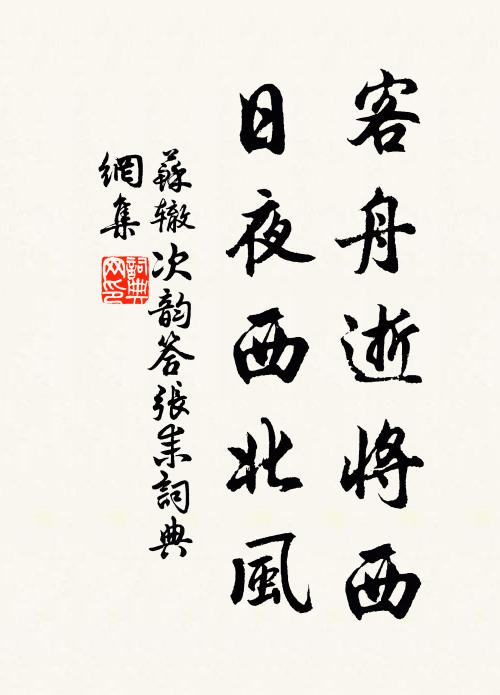 客舟逝將西
日夜西北風
蘇辙次韵答張耒詞典
網集
詞典
网印